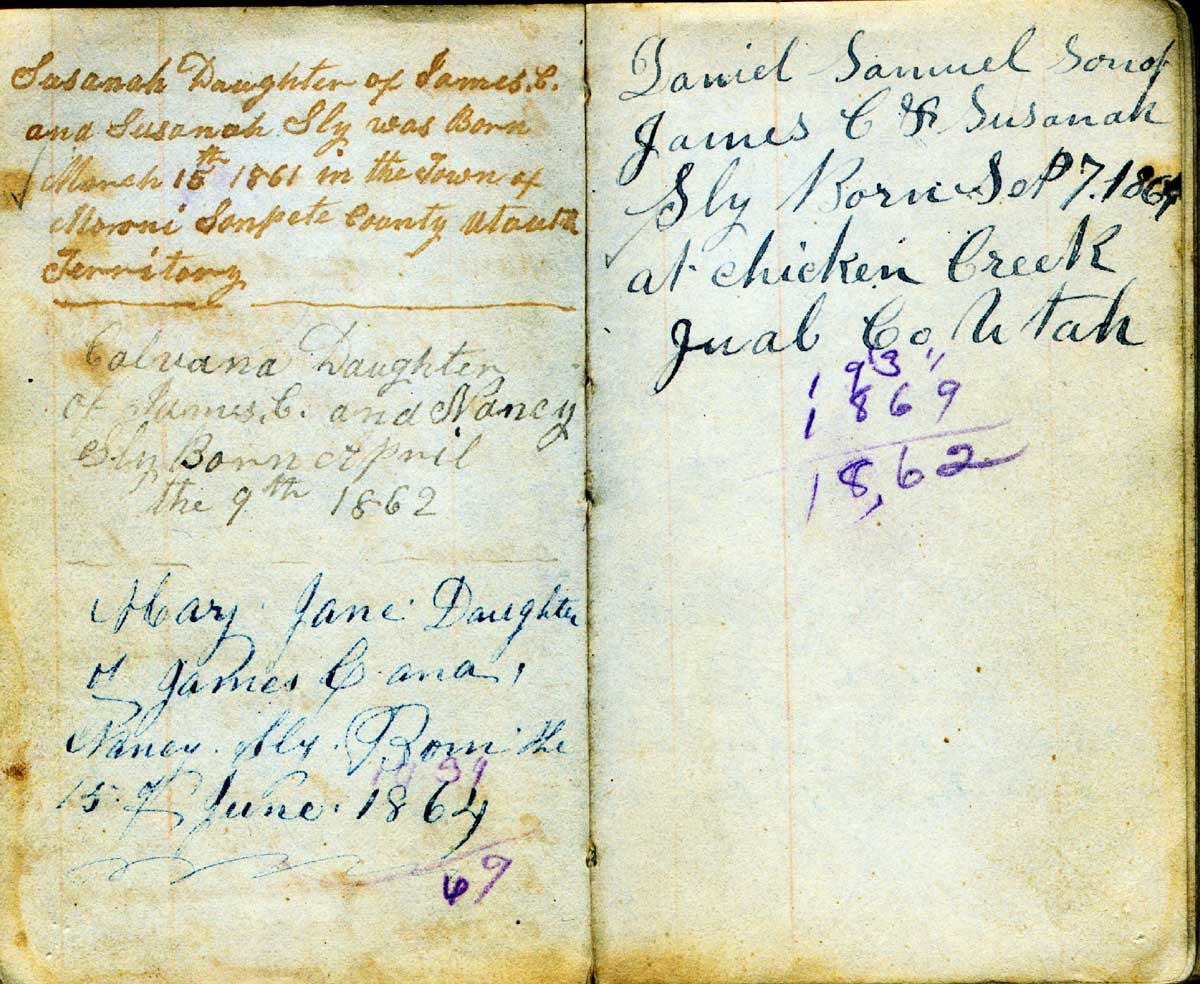 Susanah Daughter of James. C.
and Susanah Sly was Born
March 15th 1861 in the Town of
Moroni Sanpete County Utauh
Territory
Calvana Daughter
of James. C. and Nancy
Sly Born April
the 9th 1862
Mary Jane Daughter
of James C and
Nancy Sly Born the
15 of June 1864
67
Daniel Samuel Son of
James C & Susanah
Sly Born Sept 7. 1864
at chicken Creek
Jual Co Utah
1931
1869
18,62